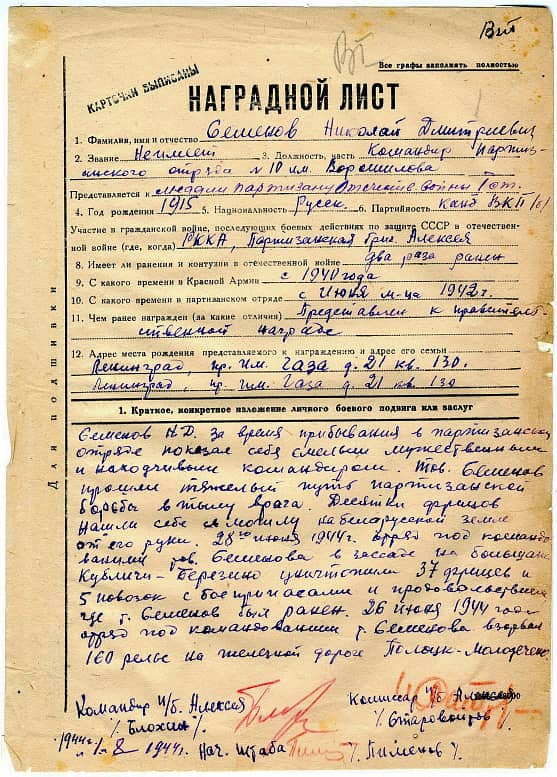 ВП
ВП
Все графы заполнять полностью
КАРТОЧКИ ВЫПИСАНЫ
НАГРАДНОЙ ЛИСТ
1. Фамилия, имя и отчество Семенов Николай Дмитриевич
2. Звание Неимеет 3. Должность, часть Командир партиз-
анского отряда N 10 им. Ворошилова
Представляется к медали партизану Отечеств. войны I ст.
4. Год рождения 1915 5. Национальность Русск. 6. Партийность Канд. ВКП/б/
Участие в гражданской войне, последующих боевых действиях по защите СССР в отечествен-
ной войне (где, когда) РККА, Партизанская бриг. Алексея
8. Имеет ли ранения и контузии в отечественной войне два раза ранен
9. С какого времени в Красной Армии с 1940 года
10. С какого времени в партизанском отряде с Июня м-ца 1942 г.
11. Чем ранее награжден (за какие отличия) Представлен к правитель-
ственной награде
12. Адрес места рождения представляемого к награждению и адрес его семьи
Ленинград, пр. Им. Газа д. 21 кв. 130.
Ленинград, пр. Им. Газа д. 21 кв. 130
Для подшивки
1. Краткое, конкретное изложение личного боевого подвига или заслуг
Семенов Н.Д. За время прибывания в партизанском
отряде показал себя смелым мужественным
и находчивым командиром. Тов. Семенов
прошел тяжелый путь партизанской
борьбы в тылу врага. Десятки фрицев
нашли себе могилу на беларусской земле
от его руки. 28го июня 1944г. отряд под командо-
ванием тов. Семенова в засаде на большаке
Кубличи-Березино уничтожили 37 фрицев и
5 повозок с боеприпасами и продовольствием
где т. Семенов был ранен. 26 июня 1944 года
отряд под командованием т. Семенова взорвал
160 рельс на железной дороге Полоцк-Молодечено
Командир п/б. Алексея
/Блохин/
Комиссар п/б Алексея
/Старовойтов/
1944г. 1-8 1944г. Нач. Штаба /Пименов/